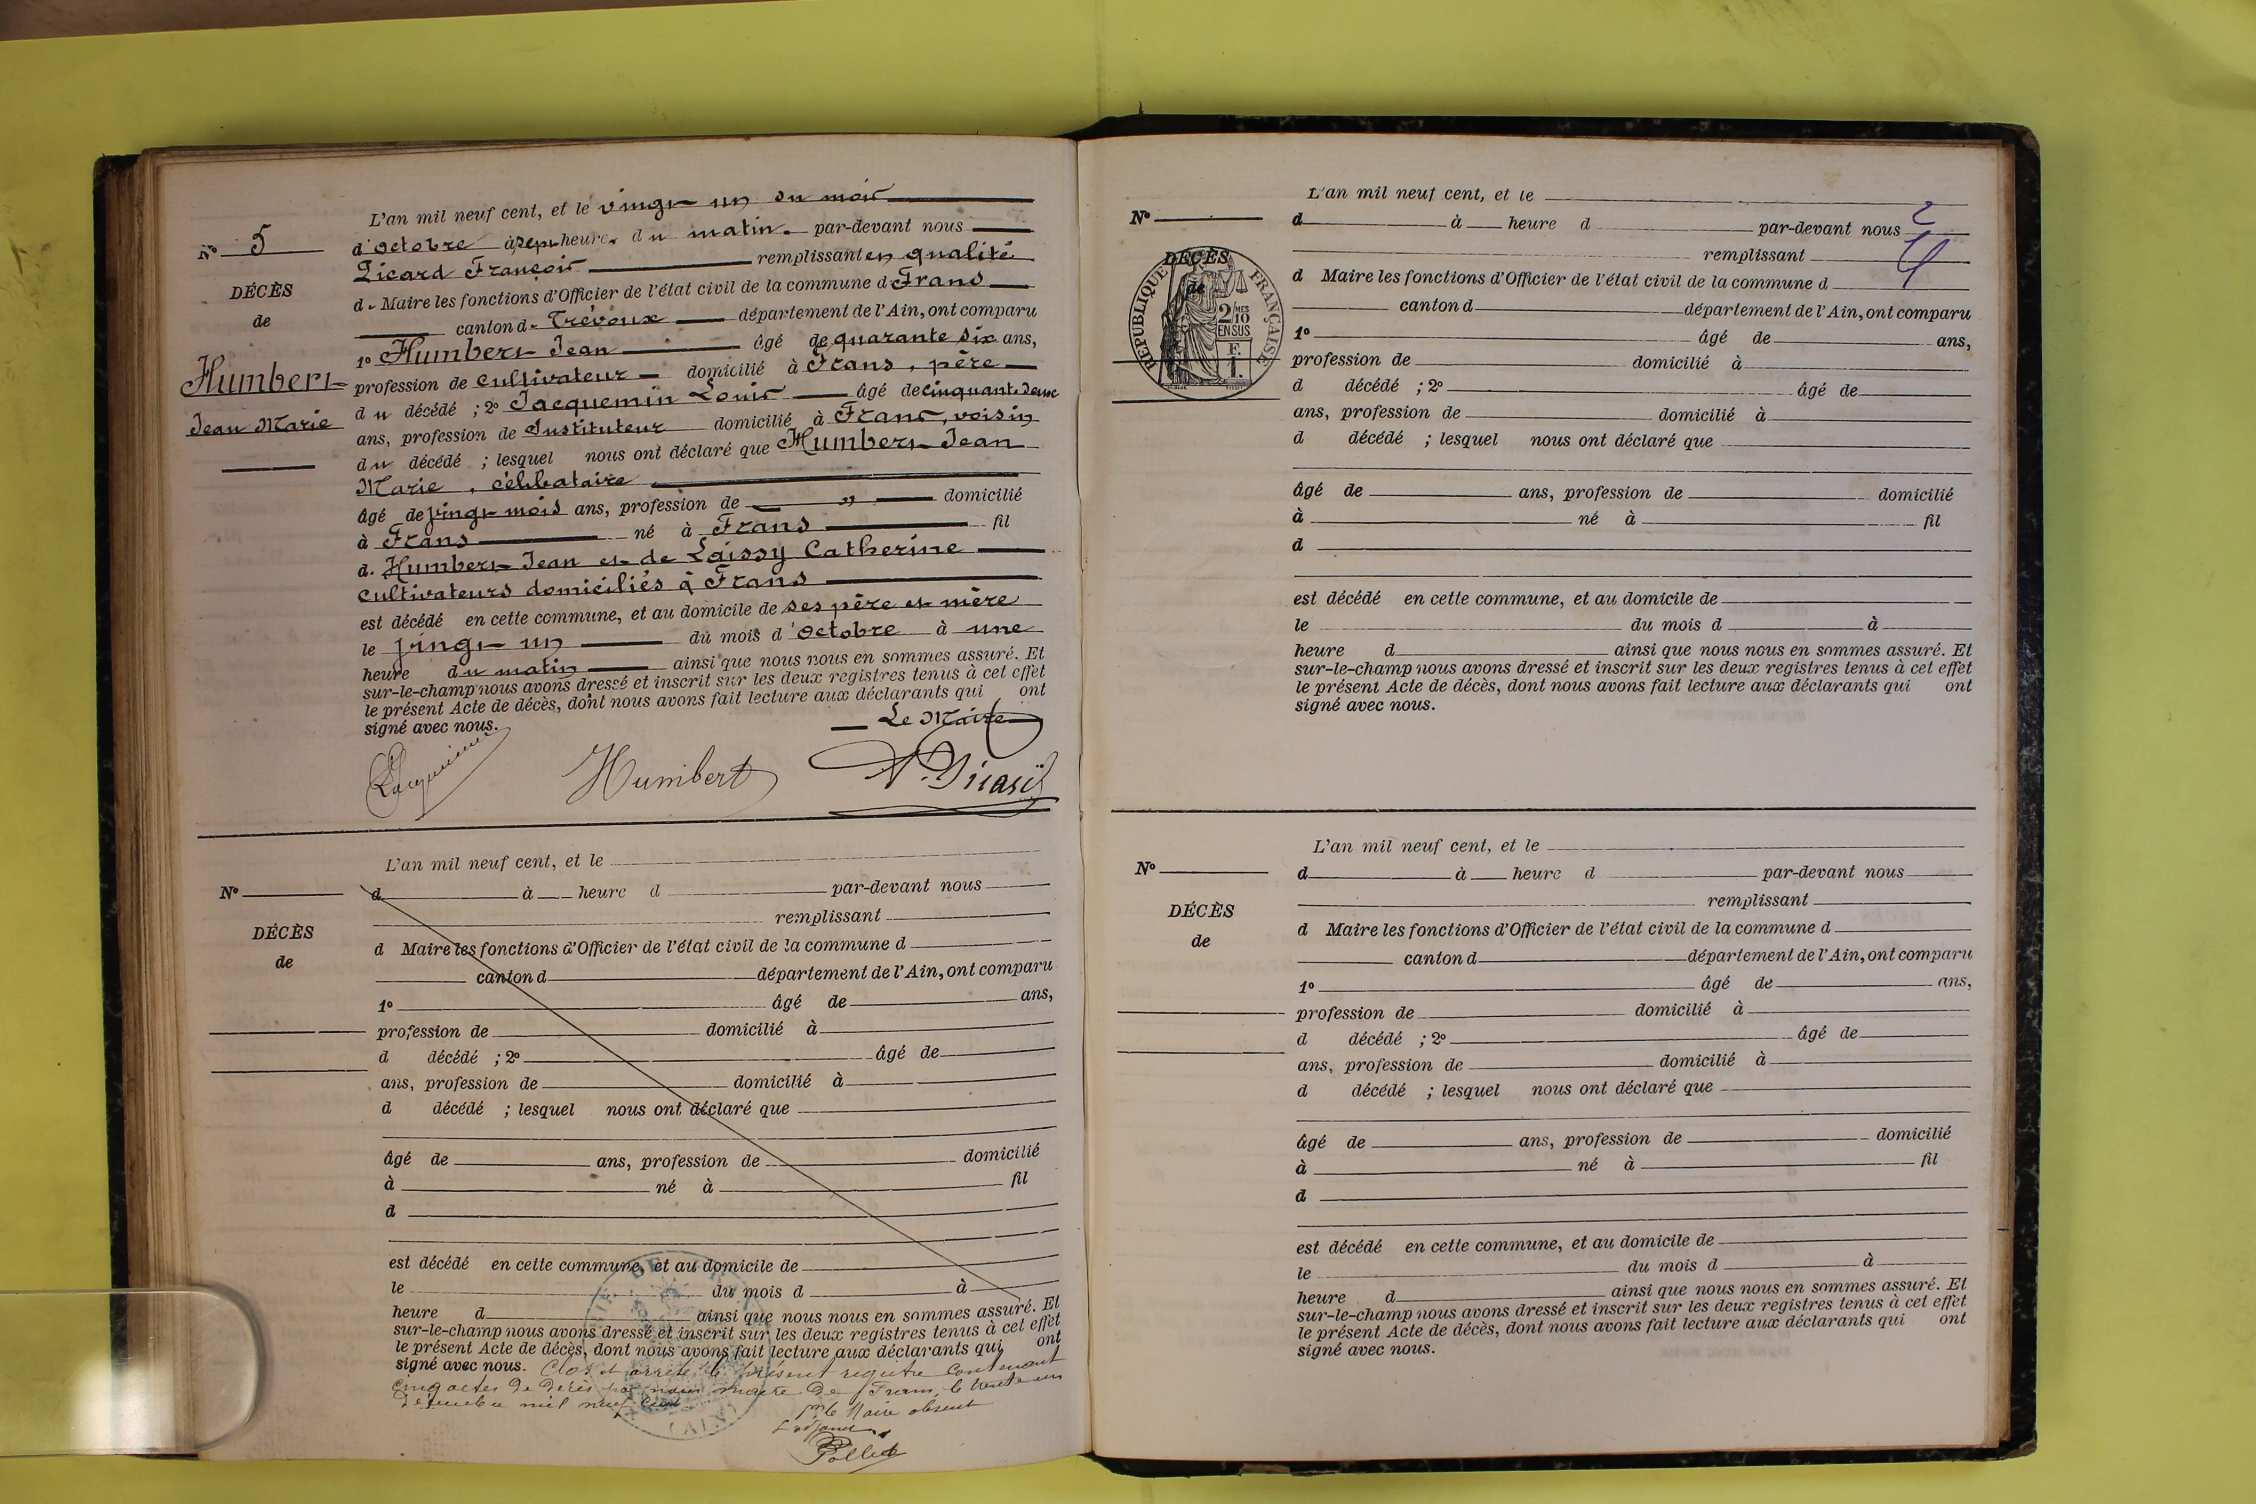 L'an mil neuf cent, et le vingt un du mois
N° 5
d'octobre à sept heures du matin. par-devant nous
Picard François remplissant en qualité
DÉCÈS
de
de Maire les fonctions d'Officier de l'état civil de la commune de Frans
canton de Trévoux département de l'Ain, ont comparu
1° Humbert Jean âgé de quarante six ans,
Humbert
Jean Marie
profession de cultivateur domicilié à Frans, père
du décédé ; 2° Jacquemin Louis âgé de cinquant-deux
ans, profession de Instituteur domicilié à Frans, voisin
du décédé ; lesquel nous ont déclaré que Humbert Jean
Marie, célibataire
âgé de vingt mois ans, profession de " domicilié
à Frans né à Frans fil
d. Humbert Jean et de Laissy Catherine
cultivateurs domiciliés à Frans
est décédé en cette commune, et au domicile de ses père et mère
le vingt un du mois d'octobre à une
heure du matin ainsi que nous nous en sommes assuré. Et
sur-le-champ nous avons dressé et inscrit sur les deux registres tenus à cet effet
le présent Acte de décès, dont nous avons fait lecture aux déclarants qui ont
signé avec nous.
Le Maire
Jacquemin Humbert Picard
L'an mil neuf cent, et le
N°
d à heure d par-devant nous
remplissant
DÉCÈS
de
d Maire les fonctions d'Officier de l'état civil de la commune d
canton d département de l'Ain, ont comparu
1° âgé de ans,
profession de domicilié à
d décédé ; 2° âgé de
ans, profession de domicilié à
d décédé ; lesquel nous ont déclaré que
âgé de ans, profession de domicilié
à né à fil
d
est décédé en cette commune, et au domicile de
le du mois d à
heure d ainsi que nous nous en sommes assuré. Et
sur-le-champ nous avons dressé et inscrit sur les deux registres tenus à cet effet
le présent Acte de décès, dont nous avons fait lecture aux déclarants qui ont
signé avec nous. Clos et arrêté le présent registre contenant
cinq actes de décès par nous maire de Frans, le trente un
décembre mil neuf cent
Pr le Maire absent
L'adjoint
Pollet
L'an mil neuf cent, et le
2
N°
d à heure d par-devant nous
remplissant
DÉCÈS
de
RÉPUBLIQUE FRANÇAISE
2/10 MES
EN SUS
F.
1.
d Maire les fonctions d'Officier de l'état civil de la commune d
canton d département de l'Ain, ont comparu
1° âgé de ans,
profession de domicilié à
d décédé ; 2° âgé de
ans, profession de domicilié à
d décédé ; lesquel nous ont déclaré que
âgé de ans, profession de domicilié
à né à fil
d
est décédé en cette commune, et au domicile de
le du mois d à
heure d ainsi que nous nous en sommes assuré. Et
sur-le-champ nous avons dressé et inscrit sur les deux registres tenus à cet effet
le présent Acte de décès, dont nous avons fait lecture aux déclarants qui ont
signé avec nous.
L'an mil neuf cent, et le
N°
d à heure d par-devant nous
remplissant
DÉCÈS
de
d Maire les fonctions d'Officier de l'état civil de la commune d
canton d département de l'Ain, ont comparu
1° âgé de ans,
profession de domicilié à
d décédé ; 2° âgé de
ans, profession de domicilié à
d décédé ; lesquel nous ont déclaré que
âgé de ans, profession de domicilié
à né à fil
d
est décédé en cette commune, et au domicile de
le du mois d à
heure d ainsi que nous nous en sommes assuré. Et
sur-le-champ nous avons dressé et inscrit sur les deux registres tenus à cet effet
le présent Acte de décès, dont nous avons fait lecture aux déclarants qui ont
signé avec nous.